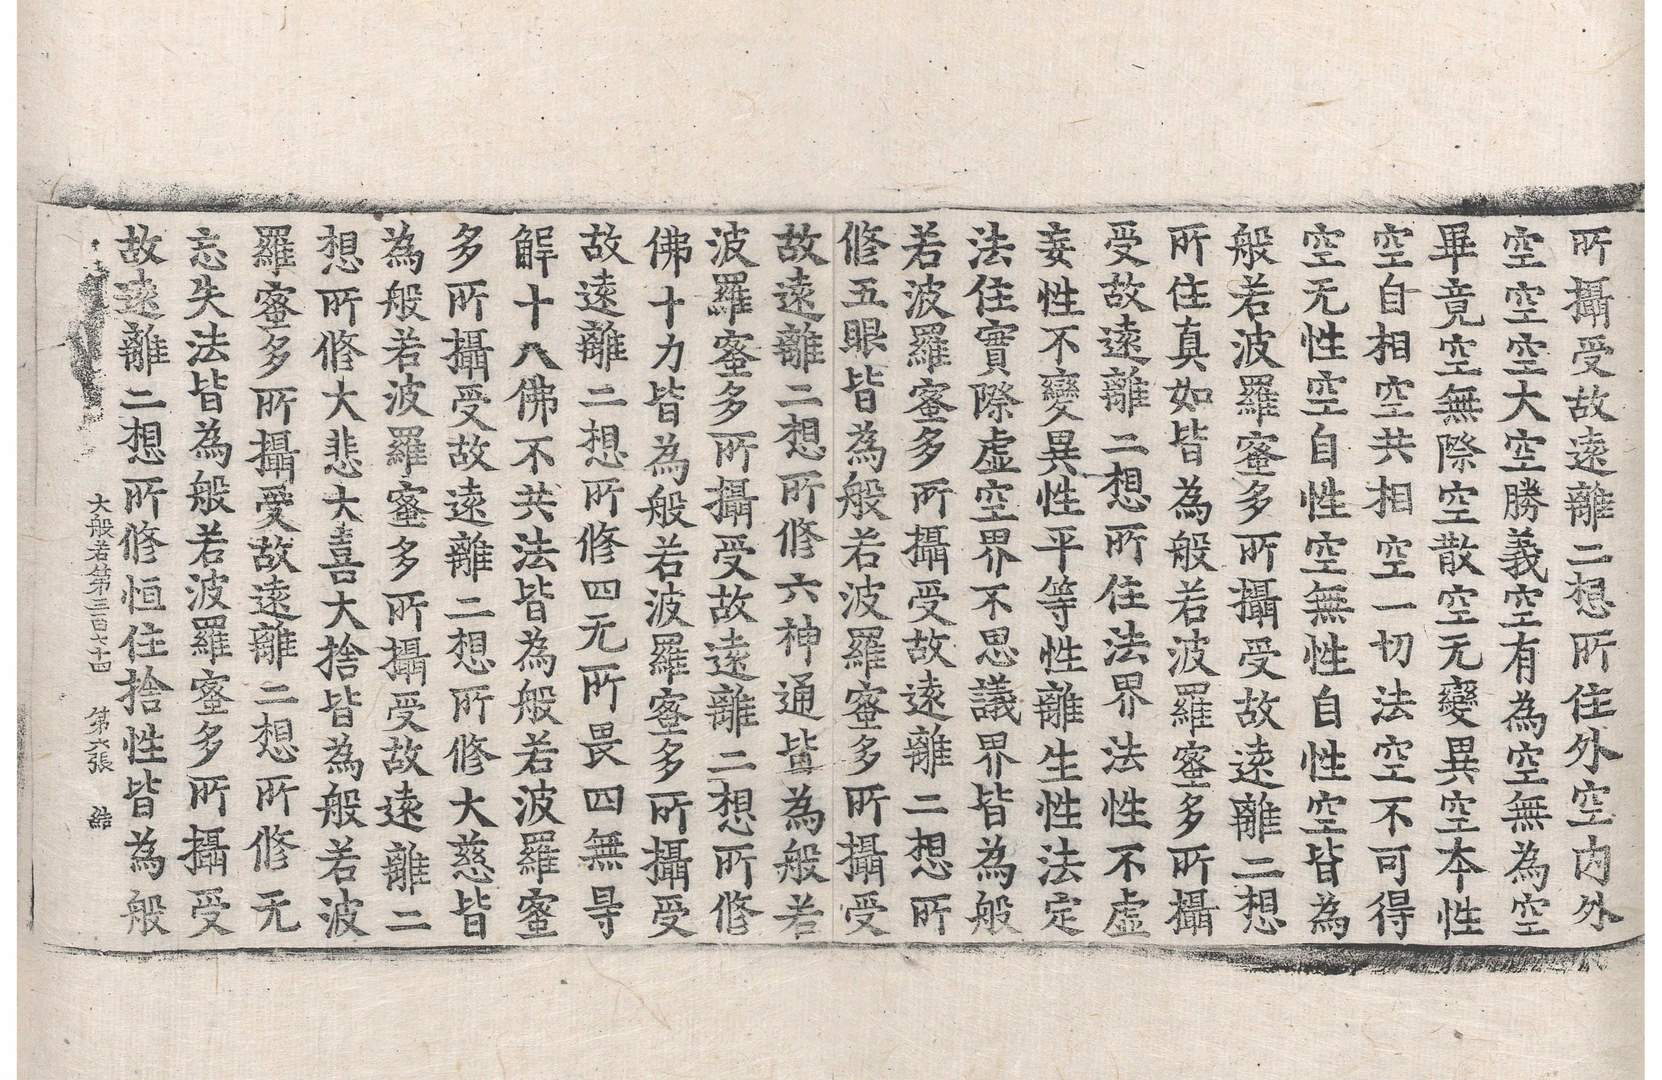 所攝受故遠離二想所住外空內外
空空空大空勝義空有為空無為空
畢竟空無際空散空无變異空本性
空自相空共相空一切法空不可得
空无性空自性空無性自性空皆為
般若波羅蜜多所攝受故遠離二想
所住真如皆為般若波羅蜜多所攝
受故遠離二想所住法界法性不虛
妄性不變異性平等性離生性法定
法住實際虛空界不思議界皆為般
若波羅蜜多所攝受故遠離二想所
修五眼皆為般若波羅蜜多所攝受
故遠離二想所修六神通皆為般若
波羅蜜多所攝受故遠離二想所修
佛十力皆為般若波羅蜜多所攝受
故遠離二想所修四无所畏四無㝵
解十八佛不共法皆為般若波羅蜜
多所攝受故遠離二想所修大慈皆
為般若波羅蜜多所攝受故遠離二
想所修大悲大喜大捨皆為般若波
羅蜜多所攝受故遠離二想所修无
忘失法皆為般若波羅蜜多所攝受
故遠離二想所修恒住捨性皆為般
大般若第三百七十四 第六張 結